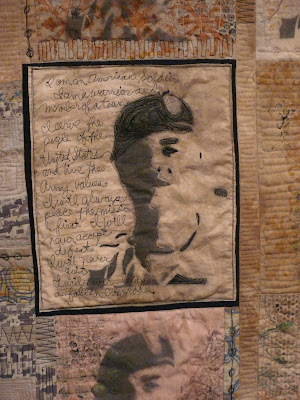 I am an American Soldier
I am a warrior and a
member of a team
I serve the
people of the
United States
and live the
Army values
I will always
place the mission
first I will
never accept
defeat
I will never
quit
I will never
a fallen comrade.